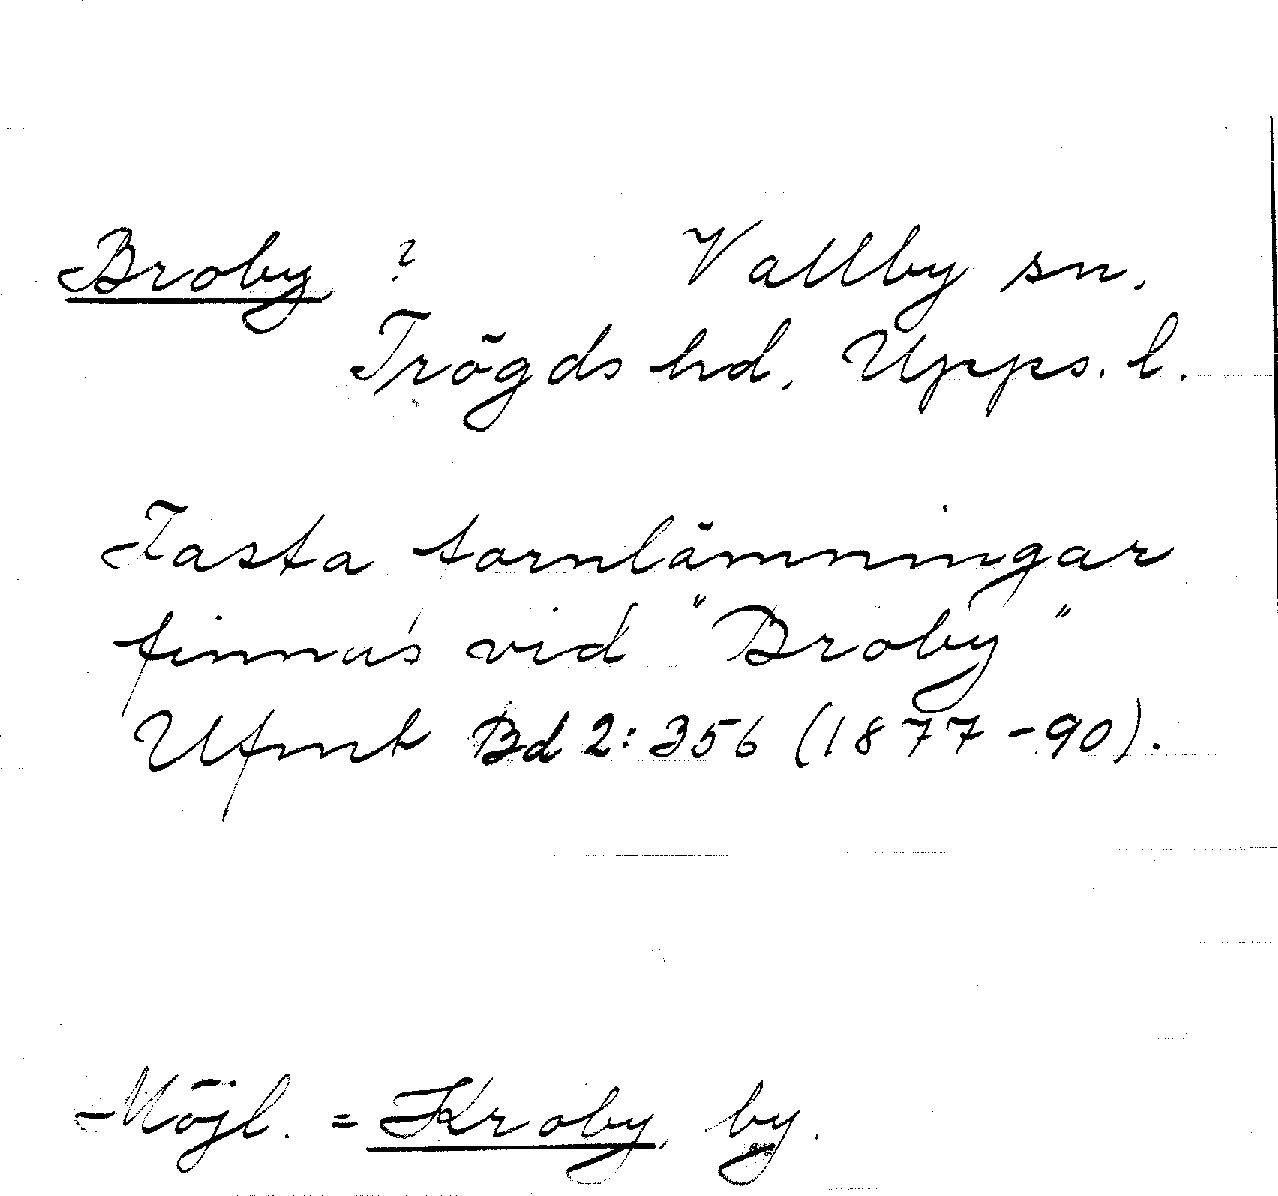 Broby ? Vallby sn.
Trögds hd. Upps. l.
Fasta fornlämningar
finnas vid "Broby"
Ufmt Bd 2: 356 (1877-90).
Möjl. = Kroby by.